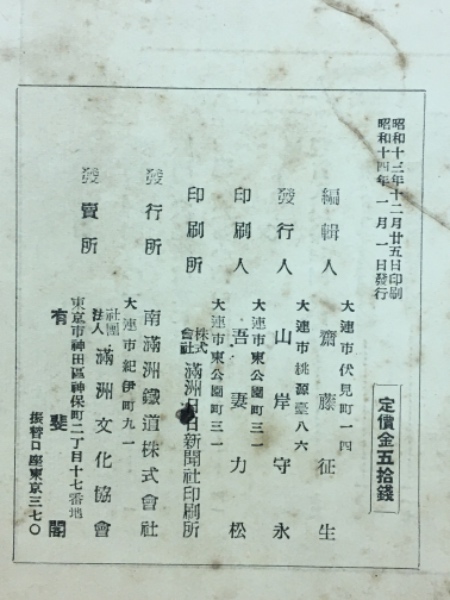 昭和十三年十二月廿五日印刷
昭和十四年一月一日發行
定價金五拾錢
大連市伏見町一四
編輯人 齋藤征生
大連市桃源臺八六
發行人 山岸守永
大連市東公園町三一
印刷人 吾妻力松
大連市東公園町三一
印刷所 株式會社 滿洲日日新聞社印刷所
發行所 南滿洲鐵道株式會社
大連市紀伊町九一
社團法人 滿洲文化協會
發賣所
東京市神田區神保町二丁目十七番地
有斐閣
振替口座東京三七〇